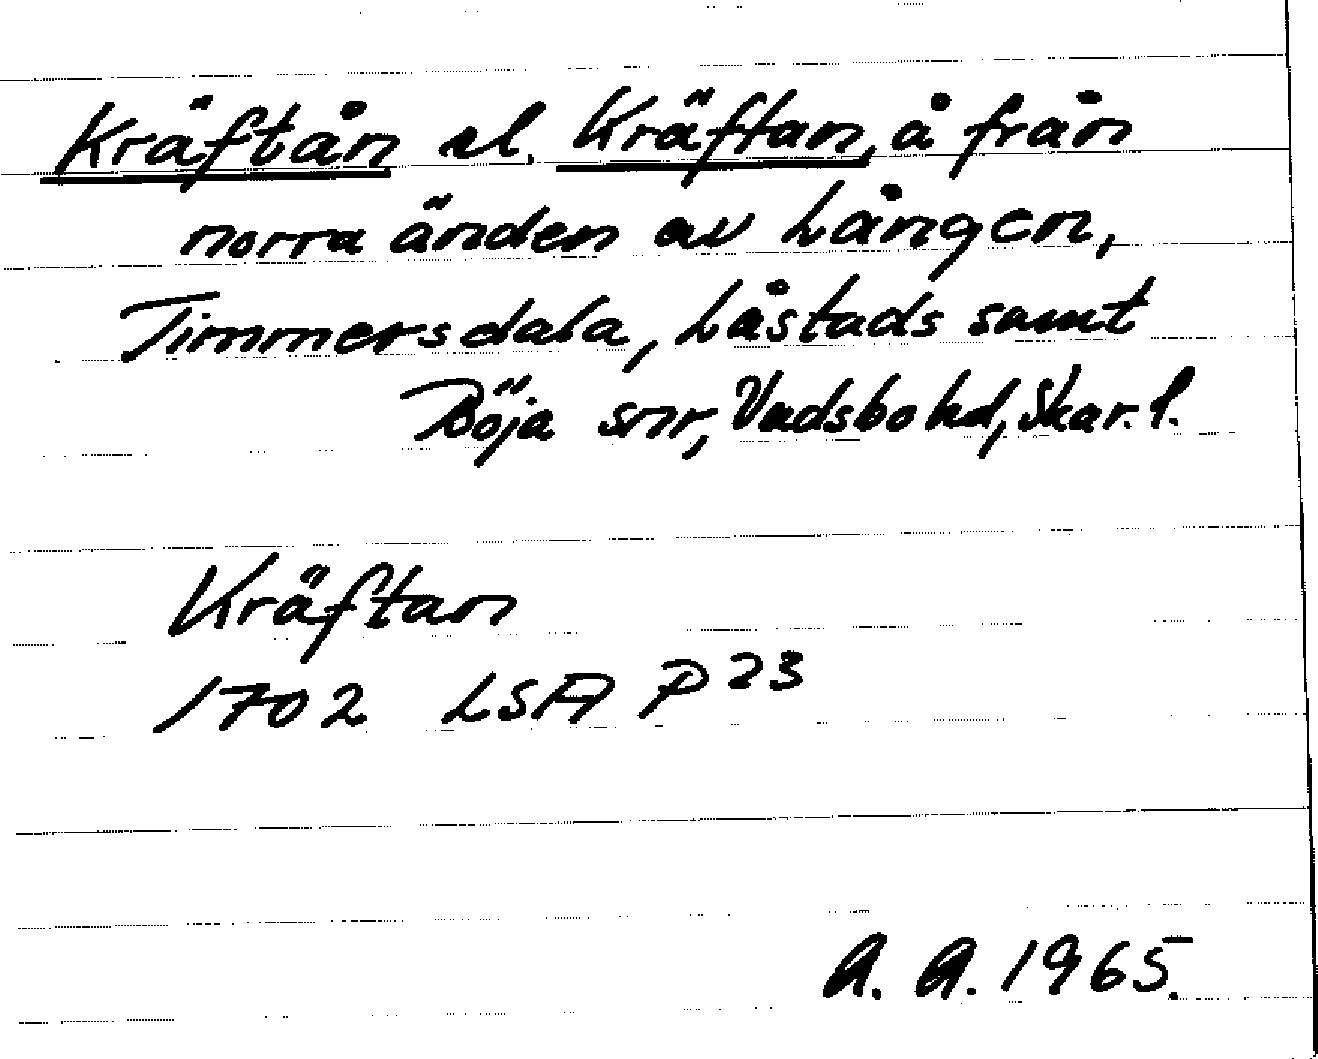 Kräftån el. Kräftan, å från
norra änden av Lången,
Timmersdala, Låstads samt
Böja snr, Vadsbo hd, Skar. l.
Kräftan
1702 LSA P 23
A. A. 1965.